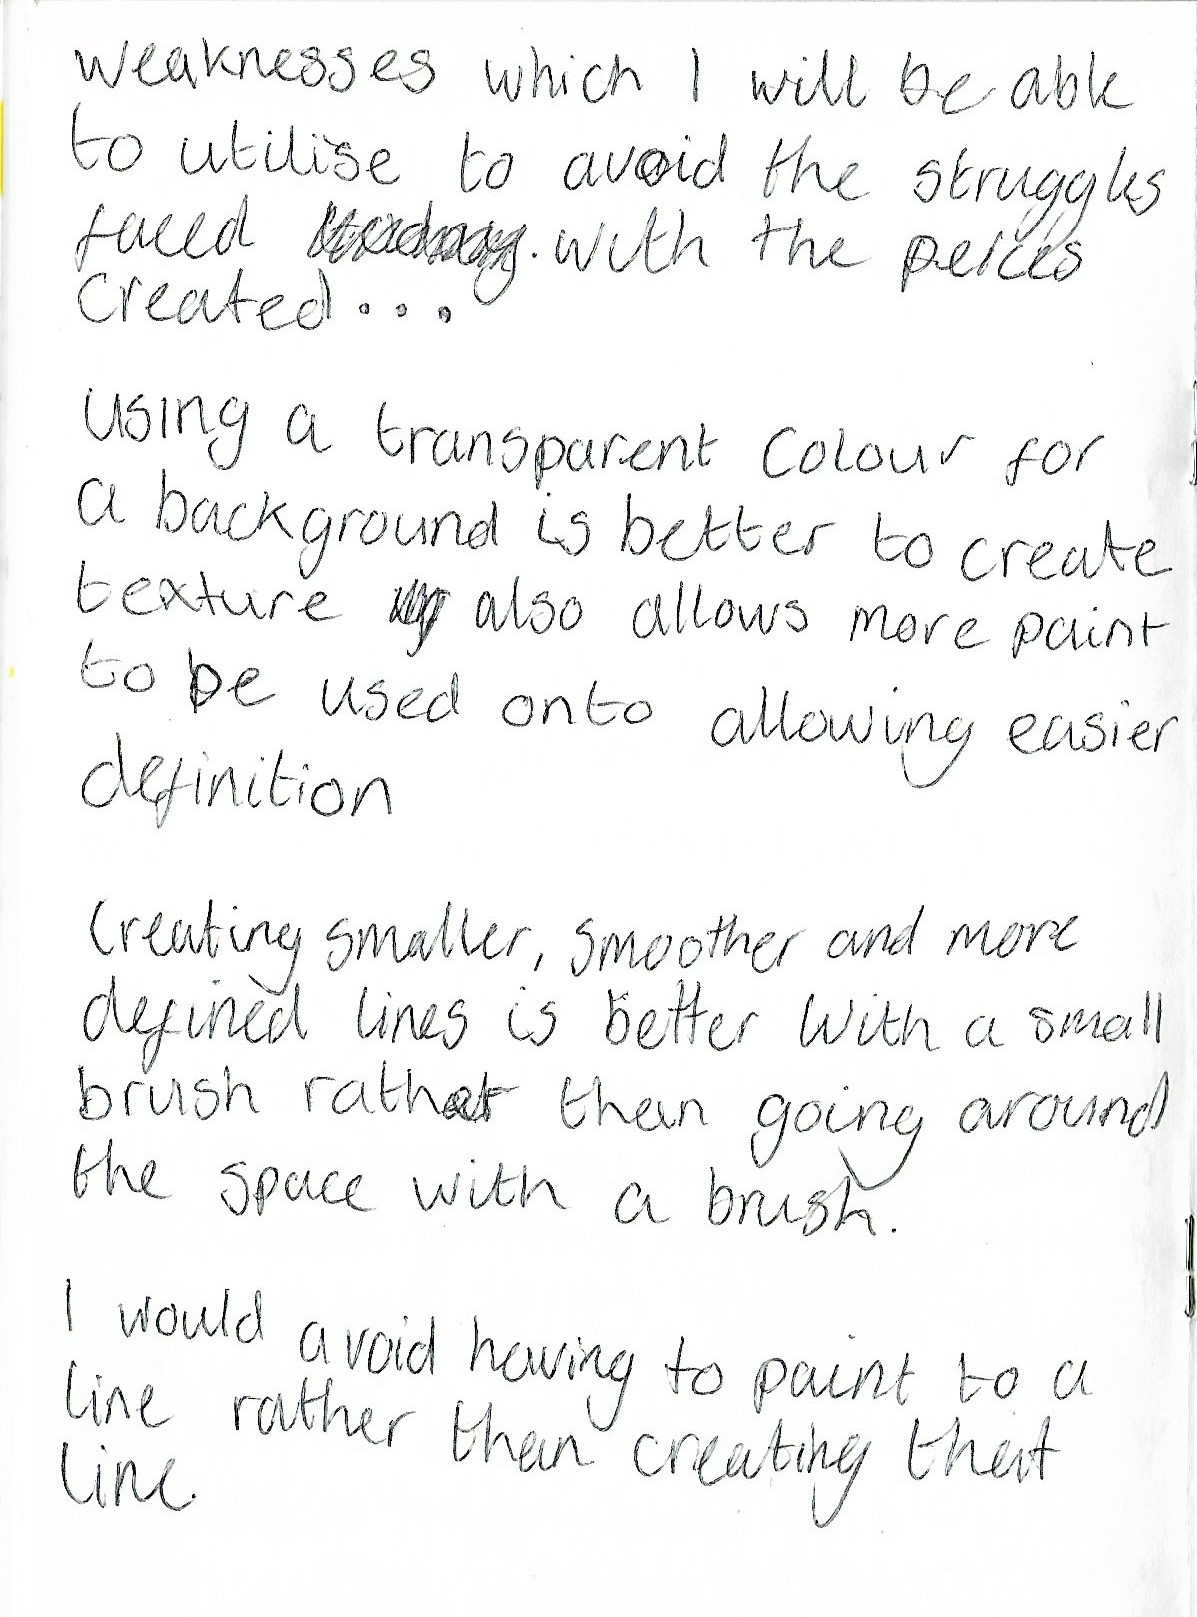 weaknesses which I will be able
to utilise to avoid the struggles
faced with the peices
Created...
using a transparent Colour for
a background is better to create
texture also allows more paint
to be used onto allowing easier
definition
Creating smaller, smoother and more
defined lines is better with a small
brush rather than going around
the space with a brush.
I would avoid having to paint to a
line rather than creating that
line.